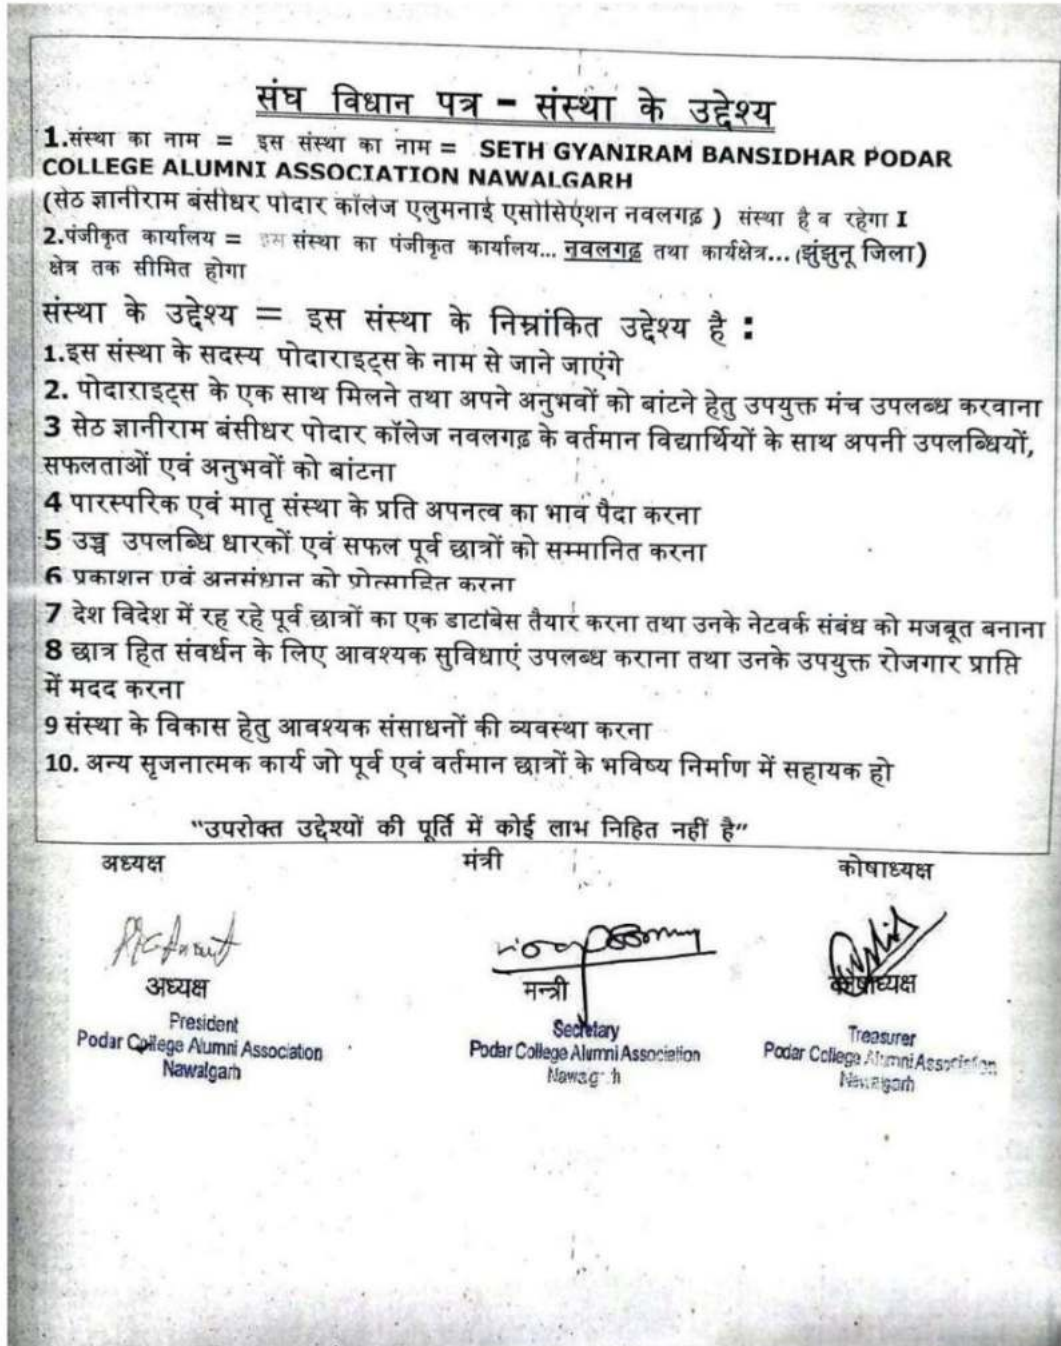 संघ विधान पत्र – संस्था के उद्देश्य
1.संस्था का नाम = इस संस्था का नाम = SETH GYANIRAM BANSIDHAR PODAR
COLLEGE ALUMNI ASSOCIATION NAWALGARH
(सेठ ज्ञानीराम बंसीधर पोदार कॉलेज एलुमनाई एसोसिएशन नवलगढ़ ) संस्था है व रहेगा I
2.पंजीकृत कार्यालय = इस संस्था का पंजीकृत कार्यालय... नवलगढ़ तथा कार्यक्षेत्र...(झुंझुनू जिला)
क्षेत्र तक सीमित होगा
संस्था के उद्देश्य = इस संस्था के निम्नांकित उद्देश्य है :
1.इस संस्था के सदस्य पोदाराइट्स के नाम से जाने जाएंगे
2. पोदाराइट्स के एक साथ मिलने तथा अपने अनुभवों को बांटने हेतु उपयुक्त मंच उपलब्ध करवाना
3 सेठ ज्ञानीराम बंसीधर पोदार कॉलेज नवलगढ़ के वर्तमान विद्यार्थियों के साथ अपनी उपलब्धियों,
सफलताओं एवं अनुभवों को बांटना
4 पारस्परिक एवं मातृ संस्था के प्रति अपनत्व का भाव पैदा करना
5 उच्च उपलब्धि धारकों एवं सफल पूर्व छात्रों को सम्मानित करना
6 प्रकाशन एवं अनुसंधान को प्रोत्साहित करना
7 देश विदेश में रह रहे पूर्व छात्रों का एक डाटाबेस तैयार करना तथा उनके नेटवर्क संबंध को मजबूत बनाना
8 छात्र हित संवर्धन के लिए आवश्यक सुविधाएं उपलब्ध कराना तथा उनके उपयुक्त रोजगार प्राप्ति
में मदद करना
9 संस्था के विकास हेतु आवश्यक संसाधनों की व्यवस्था करना
10. अन्य सृजनात्मक कार्य जो पूर्व एवं वर्तमान छात्रों के भविष्य निर्माण में सहायक हो
“उपरोक्त उद्देश्यों की पूर्ति में कोई लाभ निहित नहीं है”
अध्यक्ष मंत्री कोषाध्यक्ष
अध्यक्ष मन्त्री कोषाध्यक्ष
President Secretary Treasurer
Podar College Alumni Association Podar College Alumni Association Podar College Alumni Association
Nawalgarh Nawalgarh Nawalgarh